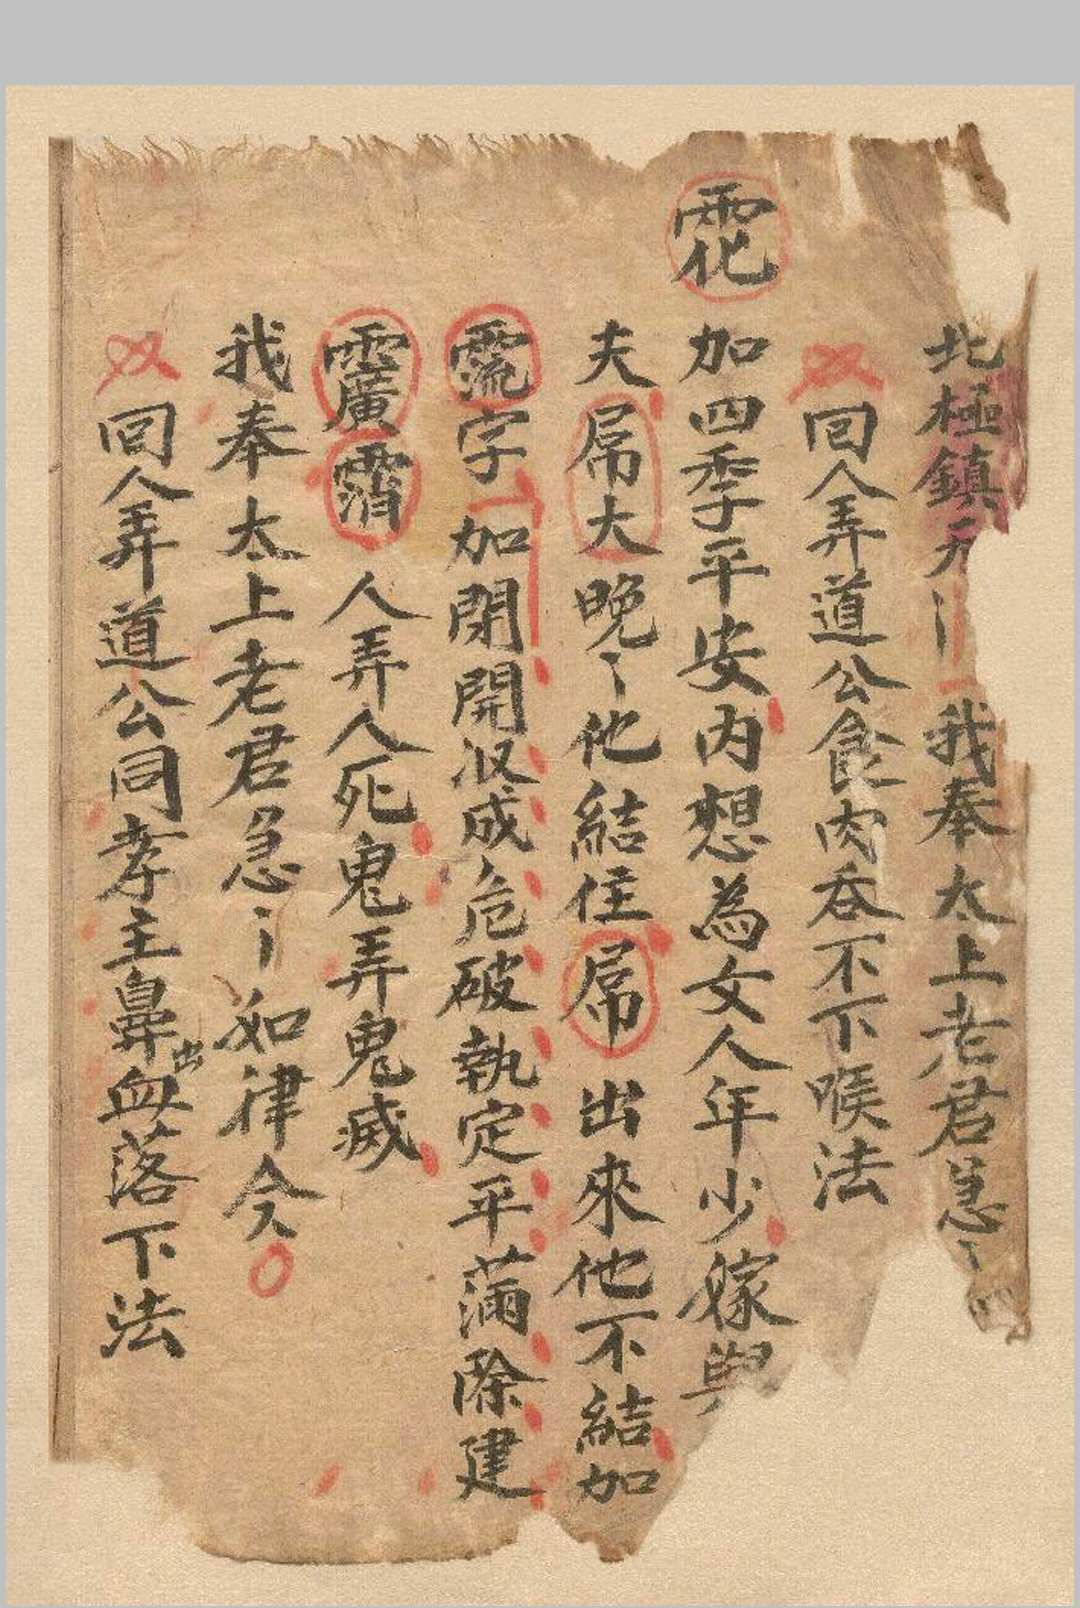 北極鎮天〻我奉太上老君急〻
回人弄道公食肉吞不下喉法
加四季平安内想為女人年少嫁與
夫屌大晚〻他結住屌出來他不結加
字加閉開収成危破執定平滿除建
人弄人死鬼弄鬼滅
我奉太上老君急〻如律令
回人弄道公同孝主鼻出血落下法